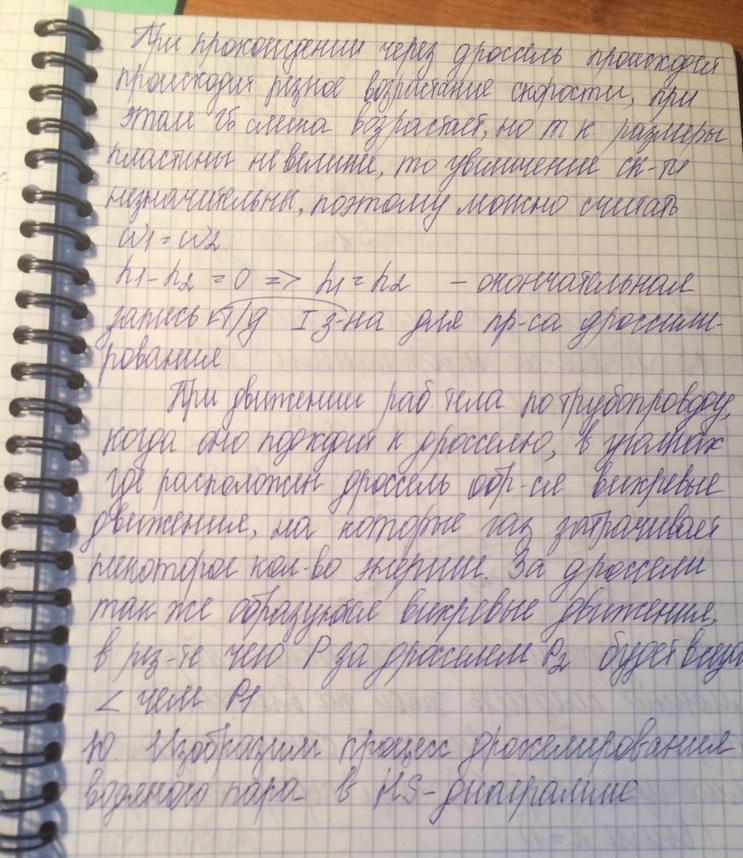 При прохождении через дроссель происходит
происходит резкое возрастание скорости, при
этом объема возрастает, но т к размеры
пластины не велики, то увеличение ск-ти
незначительны, поэтому можно считать
w1 = w2
h1 - h2 = 0 => h1 = h2 - окончательная
запись т/д I з-на для пр-са дроссели-
рования.
При движении раб тела по трубопроводу,
когда оно подходит к дросселю, в уголках
где расположен дроссель обр-ся вихревые
движения, на которые газ затрачивает
некоторое кол-во энергии. За дросселем
так же образуются вихревые движения,
в рез-те чего P за дросселем P2 будет всегда
< чем P1
10. Изобразим процесс дросселирования
водяного пара в HS-диаграмме